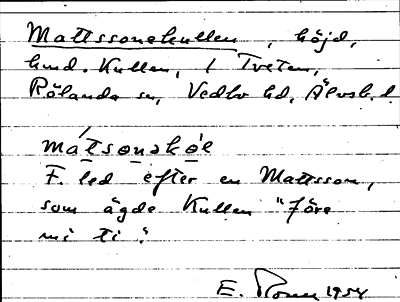 Mattssonskullen, höjd,
hmd. Kullen, 1 Tveten,
Rölanda sn, Vedbo hd, Älvsb. l.
mátsonskɵ́l
F. led efter en Mattsson,
som ägde Kullen "före
mi ti".
E. 1954